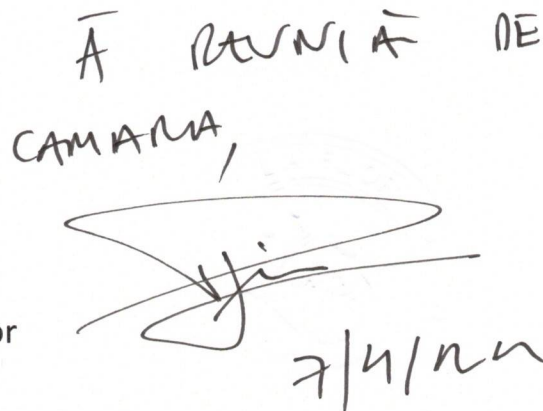 À REUNIÃ DE
CAMARA,
or